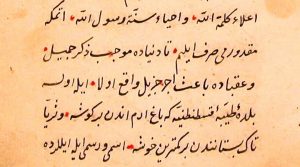 اعلاء كلمة الله * واحياء سنة رسول الله * اتمكه
مقدوریمی صرف ایلیم * تا دنیاده موجب ذكر جمیل *
وعقباده باعث اجر جزیل واقع اولا * ایله اولسه
بلدۀ طیبۀ قسطنطنیه كه باغ ارم اندن بر كوشه * وثریا
تاك بستانندن بر كمترین خوشه * اسمی ورسمی ایله ایللرده